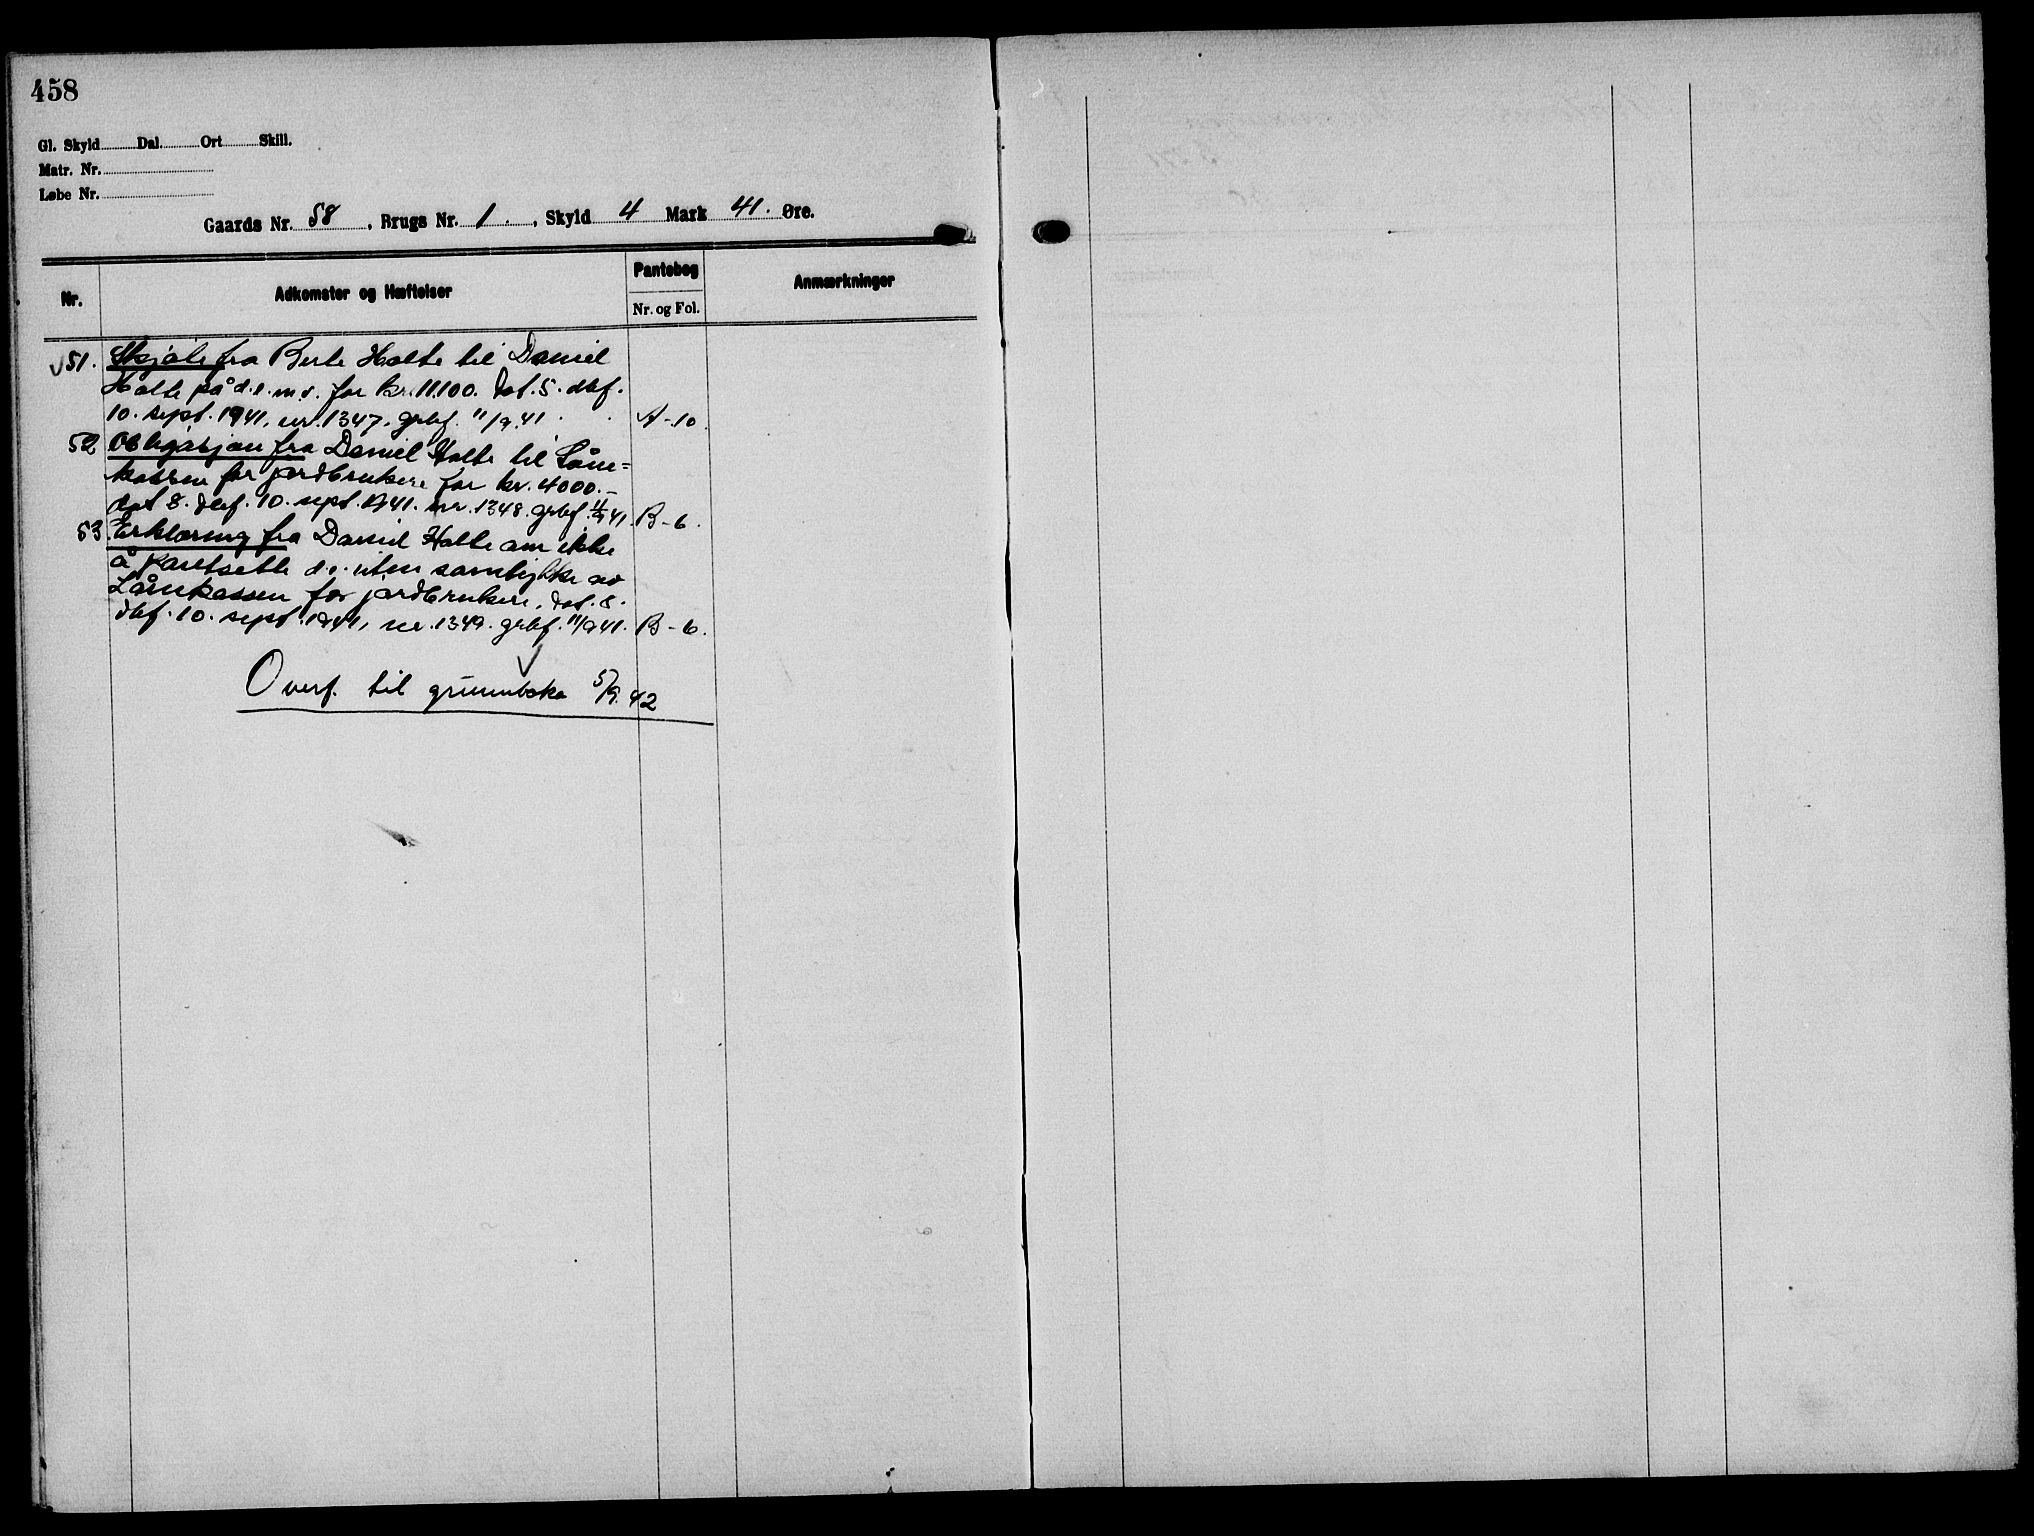 458
Gl. Skyld Dal. Ort Skill.
Matr. Nr.
Løbe Nr.
Gaards Nr. 58, Brugs Nr. 1., Skyld 4 Mark 41. Øre.
Nr. Adkomster og Hæftelser Pantebog Nr. og Fol. Anmærkninger
51. Skjøte fra Berte Holte til Daniel
Holte på d.e. m.v. for kr. 11.100. Dat. 5. dbf.
10. sept. 1941, nr. 1347. grbf. 11/9.41. A-10.
52 Obligasjon fra Daniel Holte til Låne=
kassen for jordbrukere for kr. 4000.-
dat 8. dbf. 10. sept. 1941. nr. 1348. grbf. 11/9 41. B-6.
53 Erklæring fra Daniel Holte om ikke
å pantsette d.e. uten samtykke av
Lånekassen for jordbrukere. Dat. 8.
dbf. 10. sept. 1941, nr. 1349. grbf. 11/9 41. B-6.
Overf. til grunnboka 5/9. 42